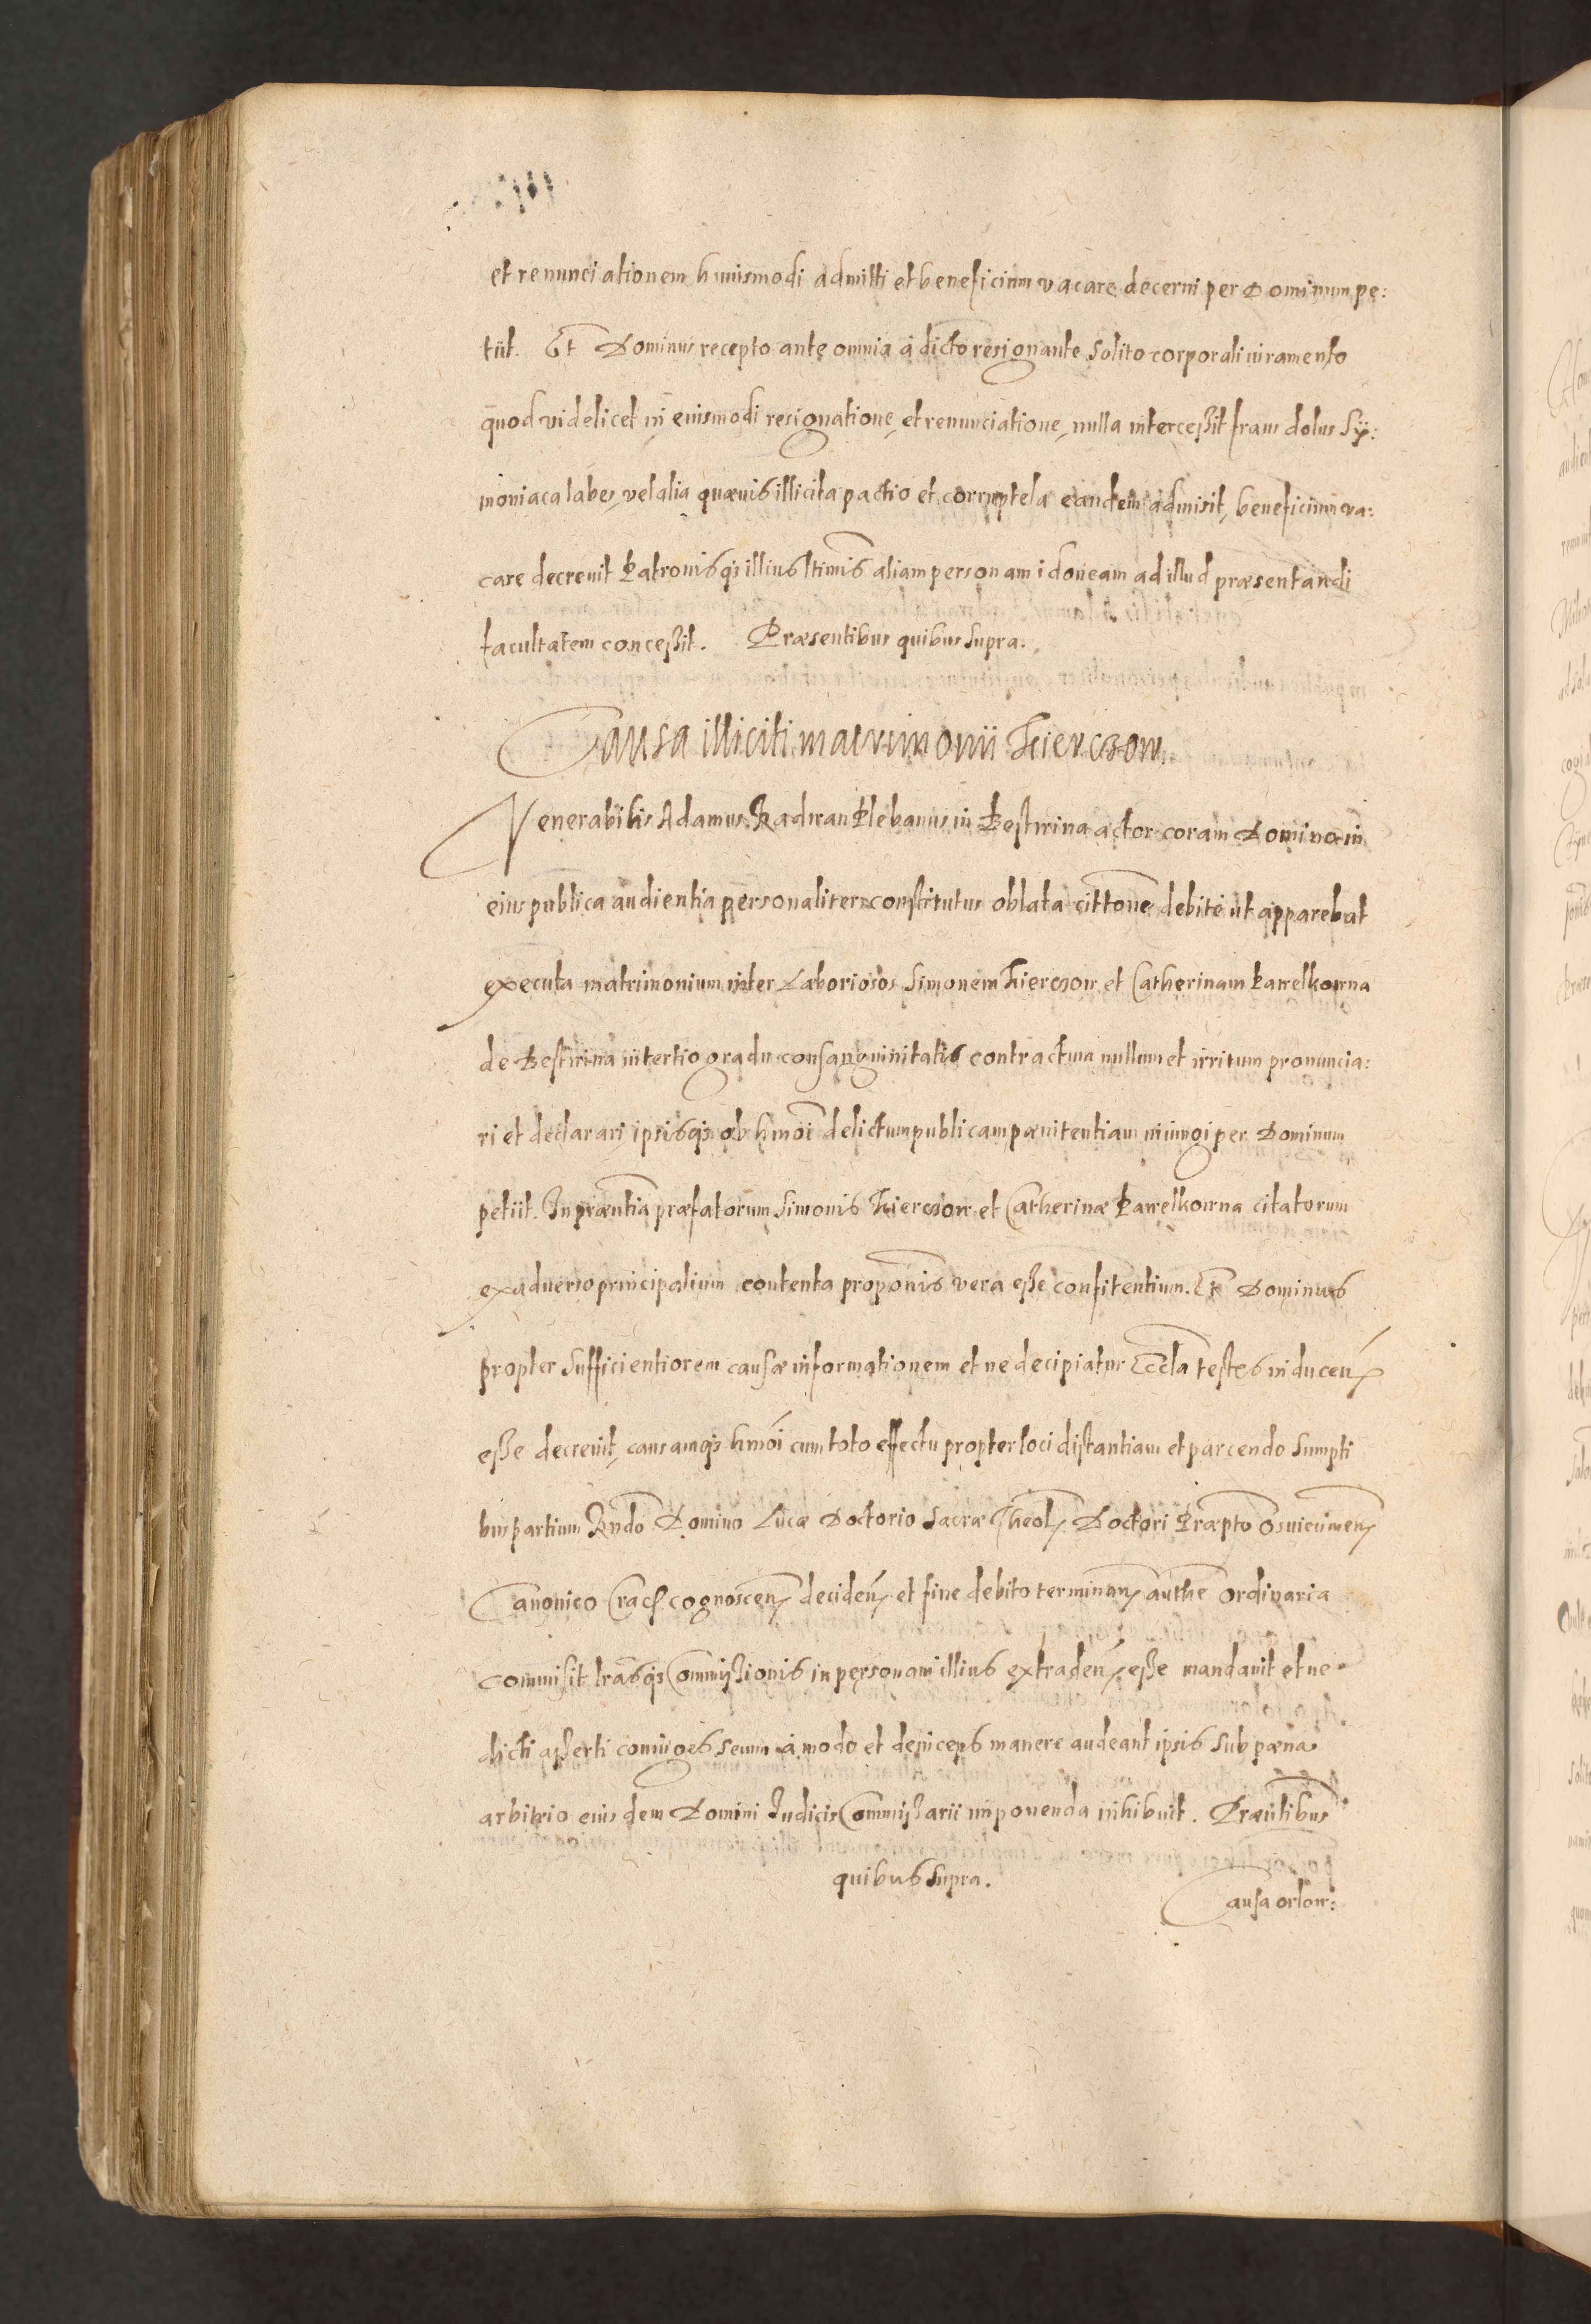 et renunciationem huiusmodi admitti et beneficium vacare decerni per Dominum pe:
tiit. Et Dominus recepto ante omnia à dicto resignante solito corporali iuramento
quod videlicet in eiusmodi resignatione, et renunciatione, nulla intercessit fraus dolus Sÿ:
moniaca labes, vel alia quævis illicita pactio et corruptela eandem admisit, beneficium va:
care decrevit Patronisq; illius ltimis aliam personam idoneam ad illud præsentandi
facultatem concessit. Præsentibus quibus supra.
Causa illiciti matrimonii Kierczow
Venerabilis Adamus Radwan Plebanus in Bestwina actor coram Domino in
eius publica audientia personaliter constitutus oblata cittone debite ut apparebat
executa matrimonium inter Laboriosos Simonem Kierczow et Catherinam Pawelkowna
de Bestwina in tertio gradu consanguinitatis contractum nullum et irritum pronuncia:
ri et declarari, ipsisq; ob hmoi delictum publicam pænitentiam iniungi per Dominum
petiit. In præntia præfatorum Simonis Kierczow et Catherinæ Pawelkowna citatorum
ex adverso principalium contenta proponis vera esse confitentium. Et Dominus
propter sufficientiorem causæ informationem et ne decipiatur Eccla testes inducen
esse decrevit, causamq; hmoi cum toto effectu propter loci distantiam et parcendo sumpti
bus partium Rndo Domino Lucæ Doctorio Sacræ Theol Doctori Præpto Osvicimen
Canonico Crac cognoscen deciden et fine debito terminan authe ordinaria
commisit lrasq; Commissionis in personam illius extraden esse mandavit et ne
dicti asserti coniuges seum à modo et deinceps manere audeant ipsis sub pæna
arbitrio eiusdem Domini Iudicis Commissarii imponenda inhibuit. Præntibus
quibus supra.
Causa orlow: